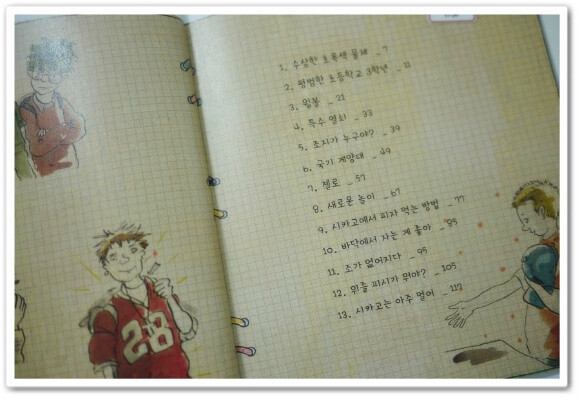 1. 수상한 초록색 물체 _ 7
2. 평범한 초등학교 3학년 _ 11
3. 윌볼 _ 21
4. 특수 열쇠 _ 33
5. 조지가 누구야? _ 39
6. 국기 게양대 _ 49
7. 젤로 _ 57
8. 새로운 놀이 _ 67
9. 시카고에서 피자 먹는 방법 _ 77
10. 바닥에서 자는 게 좋아 _ 85
11. 조가 멀어지다 _ 95
12. 위즐 피시가 뭐야? _ 105
13. 시카고는 아주 멀어 _ 113
28